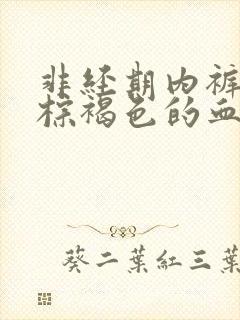 非经期内裤
棕褐色的血
葵二葉紅三葉